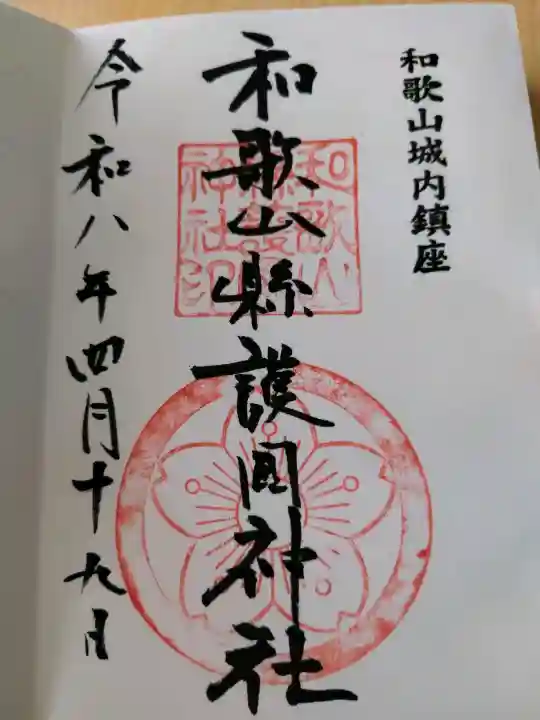 和歌山城内鎮座
和歌山縣護国神社
令和八年四月十九日
和歌山
縣護國
神社印